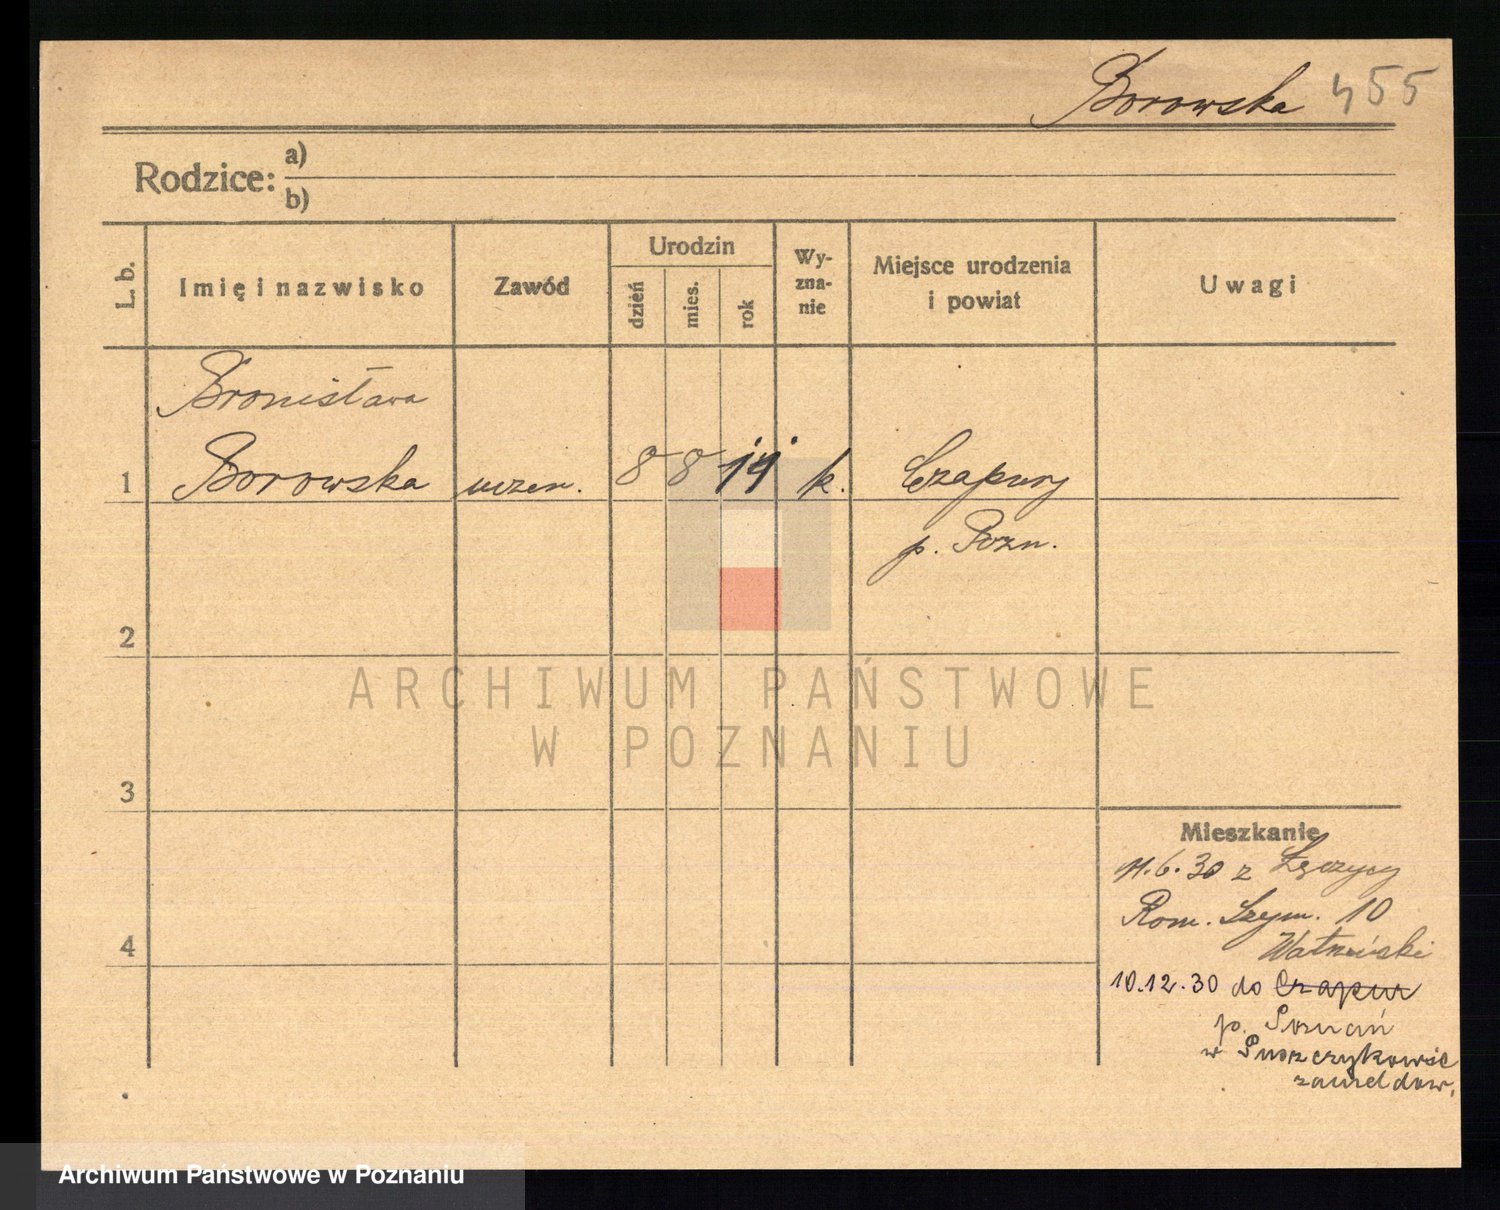 Borowska 455
Rodzice: a)
b)
L. b.
Imię i nazwisko
Zawód
Urodzin
dzień
mies.
rok
Wy-
zna-
nie
Miejsce urodzenia
i powiat
Uwagi
Bronisława
1 Borowska uczen. 8 8 14 k. Czapury
p. Pozn.
2
ARCHIWUM PAŃSTWOWE
W POZNANIU
3
Mieszkanie
11.6.30 z Łęczycy
Rom. Szym. 10
4
10.12.30 do Czapur
p. Poznań
w Puszczykowie
zameldow.
Archiwum Państwowe w Poznaniu